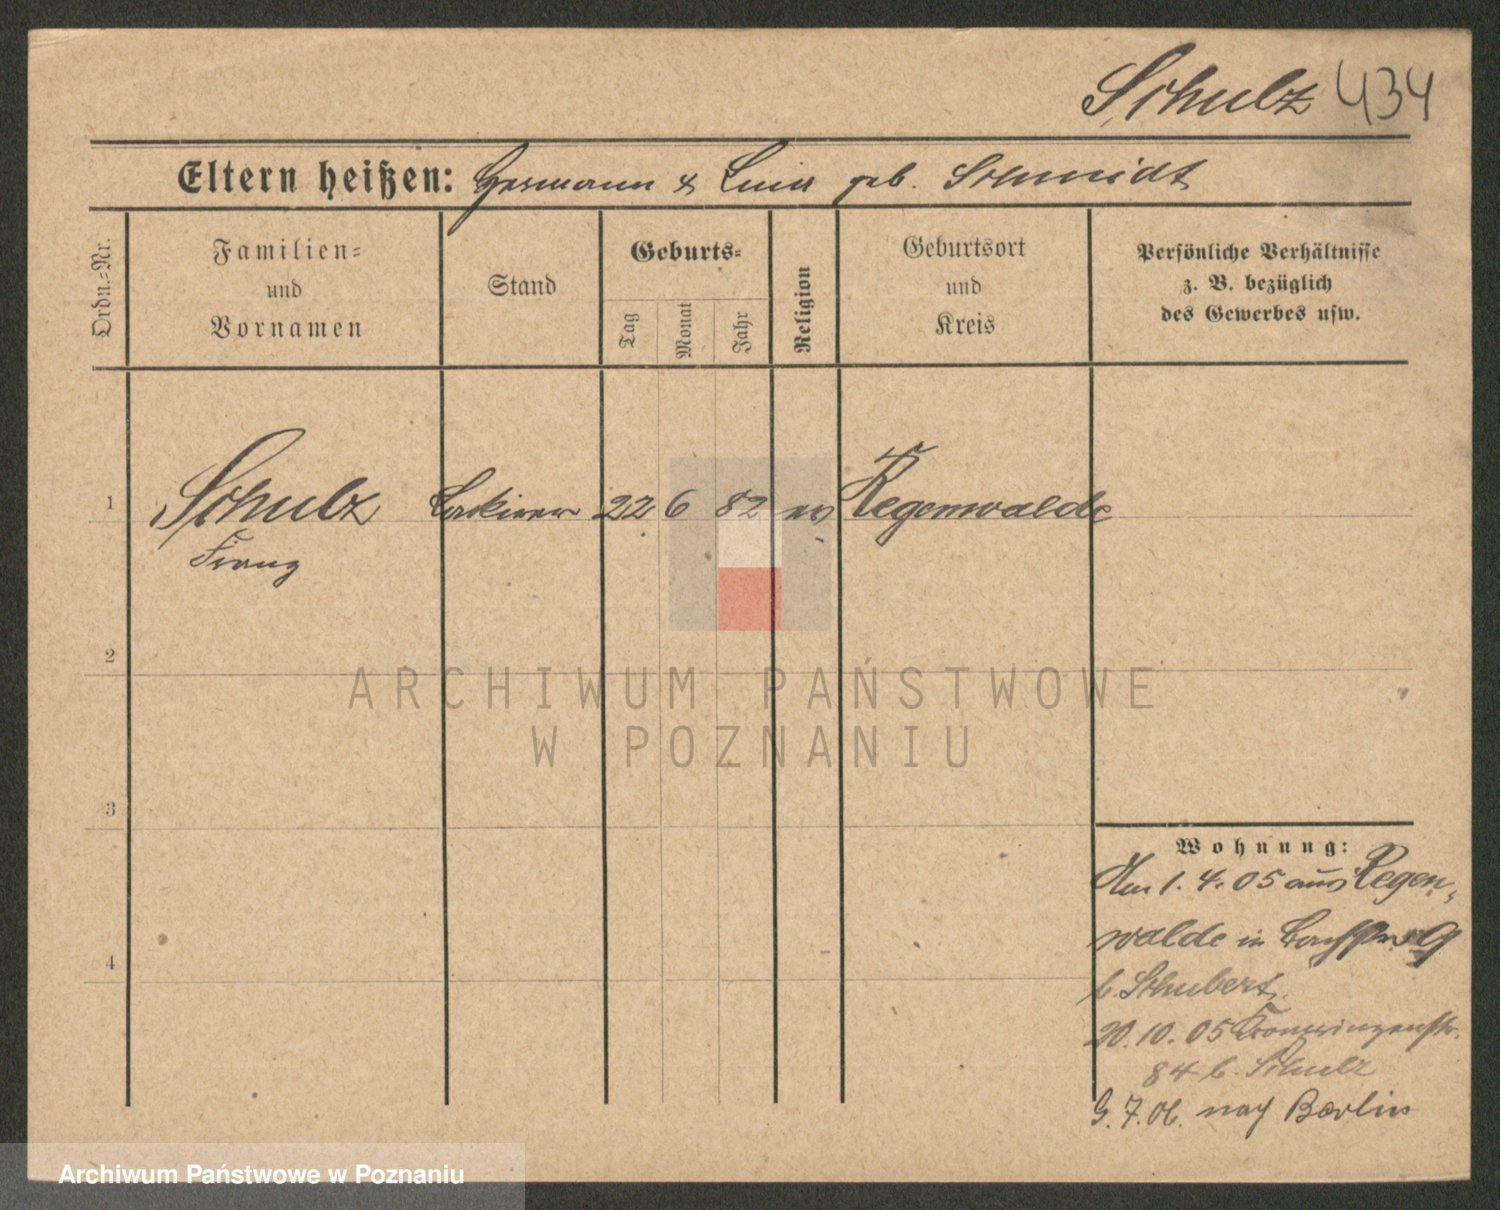 Schulz 434
Eltern heißen: Hermann & Lina geb. Schmidt
Ordn.=Nr.
Familien=
und
Vornamen
Stand
Geburts=
Tag
Monat
Jahr
Religion
Geburtsort
und
Kreis
Persönliche Verhältnisse
z. B. bezüglich
des Gewerbes usw.
1 Schulz Lackirer 22 6 82 ev Regenwalde
Franz
2
3
4
ARCHIWUM PAŃSTWOWE
W POZNANIU
Wohnung:
Am 1. 4. 05 aus Regen-
walde in 9
b. Schubert.
20. 10. 05 Kronprinzenstr.
84 b. Schulz
7. 06. nach Berlin
Archiwum Państwowe w Poznaniu